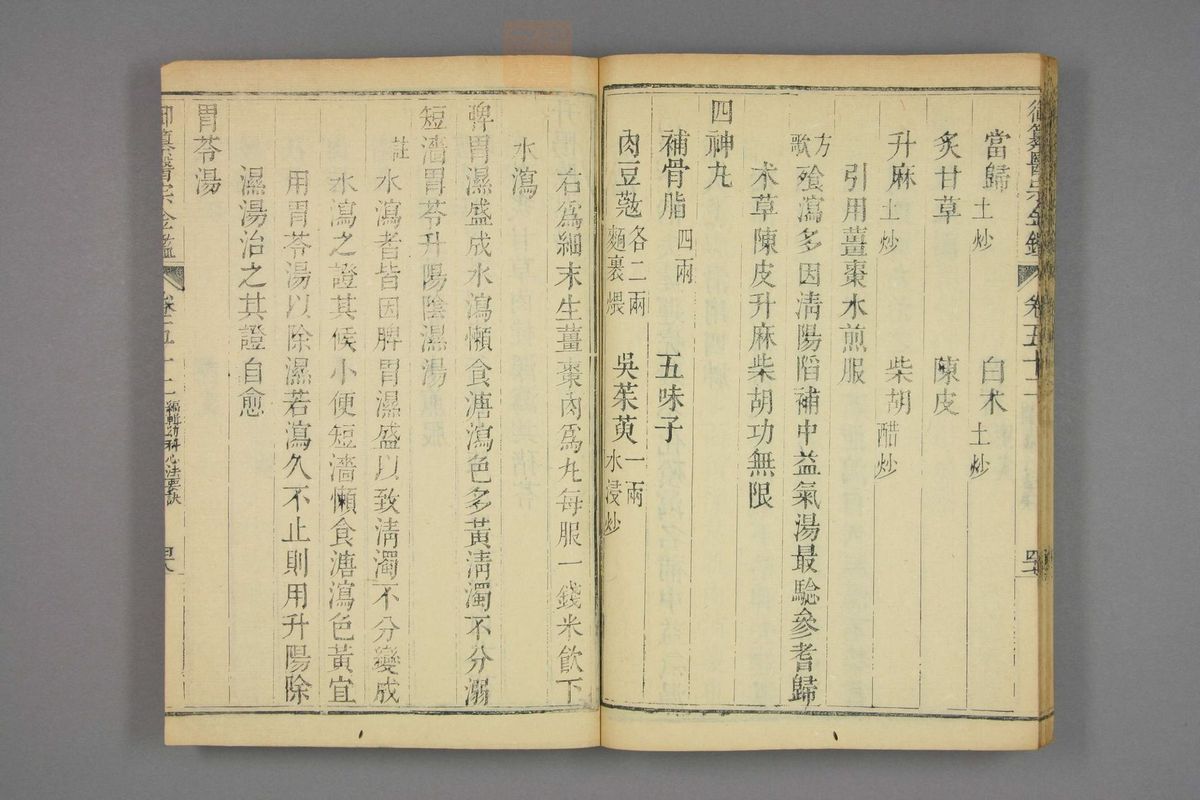 御纂醫宗金鑑 卷五十二
當歸土炒 白朮土炒
炙甘草 陳皮
升麻土炒 柴胡醋炒
引用薑棗水煎服
方歌 飱瀉多因清陽陷補中益氣湯最騐參耆歸
朮草陳皮升麻柴胡功無限
四神丸
補骨脂四兩 五味子
肉豆蔲各二兩麵裹煨 吳茱萸一兩水浸炒
右爲細末生薑棗肉爲丸每服一錢米飲下
水瀉
脾胃濕盛成水瀉懶食溏瀉色多黃清濁不分溺
短濇胃苓升陽除濕湯
註 水瀉者皆因脾胃濕盛以致清濁不分變成
水瀉之證其候小便短濇懶食溏瀉色黃宜
用胃苓湯以除濕若瀉久不止則用升陽除
濕湯治之其證自愈
胃苓湯
御纂醫宗金鑑 卷五十二 編輯幼科心法要訣